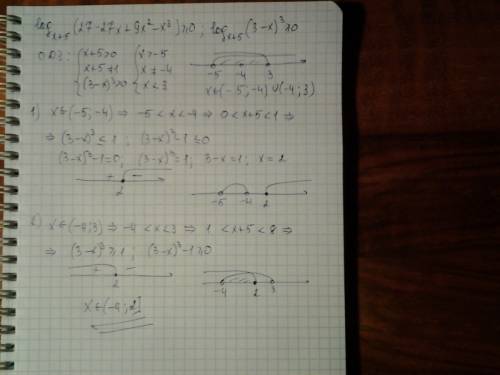 log_{x+5}(27-27x+9x²-x³)≥0; log_{x+5}(3-x)³≥0
ОДЗ: { x+5>0 { x>-5
x+5≠1 x≠-4
(3-x)³>0 x<3
-5 -4 3
x∈(-5,-4)∪(-4;3)
1) x∈(-5,-4) ⇒ -5<x<-4 ⇒ 0<x+5<1 ⇒
⇒ (3-x)³≤1; (3-x)³-1≤0
(3-x)³-1=0, (3-x)³=1; 3-x=1; x=2
+ -
2
-5 -4 2
2) x∈(-4;3) ⇒ -4<x<3 ⇒ 1<x+5<8 ⇒
⇒ (3-x)³≥1; (3-x)³-1≥0
+ -
2
-4 2 3
x∈(-4;2]